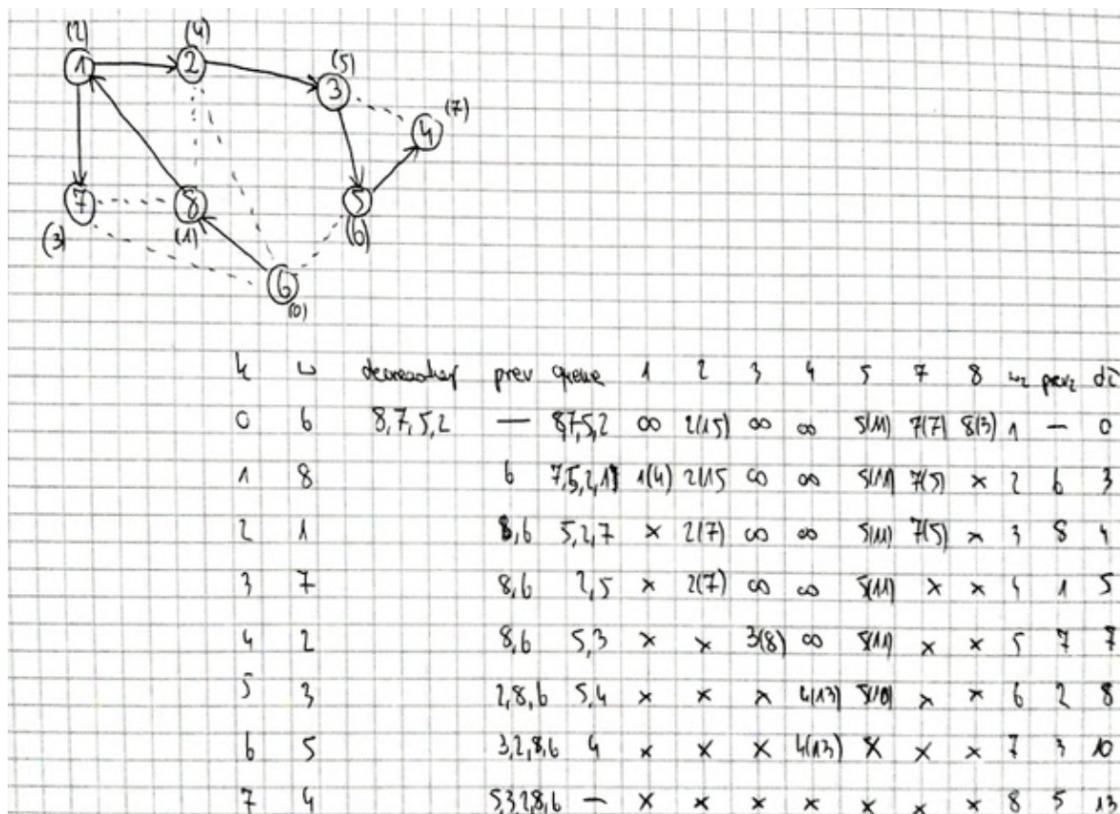 (2) (4)
1 2 (5)
3 (7)
4
7 8 5
(3) (1) (6)
6
(0)
k w prev queue 1 2 3 4 5 7 8
0 6 8,7,5,2 — 8,7,5,2 ∞ 2(15) ∞ ∞ 5(11) 7(7) 8(3) 1 — 0
1 8 6 7,5,2,1 1(4) 2(15 ∞ ∞ 5(11) 7(5) × 2 6 3
2 1 8,6 5,2,7 × 2(7) ∞ ∞ 5(11) 7(5) × 3 8 4
3 7 8,6 2,5 × 2(7) ∞ ∞ 5(11) × × 4 1 5
4 2 8,6 5,3 × × 3(8) ∞ 5(11) × × 5 7 7
5 3 2,8,6 5,4 × × × 4(13) 5(10) × × 6 2 8
6 5 3,2,8,6 4 × × × 4(13) × × × 7 3 10
7 4 5,3,2,8,6 — × × × × × × × 8 5 13